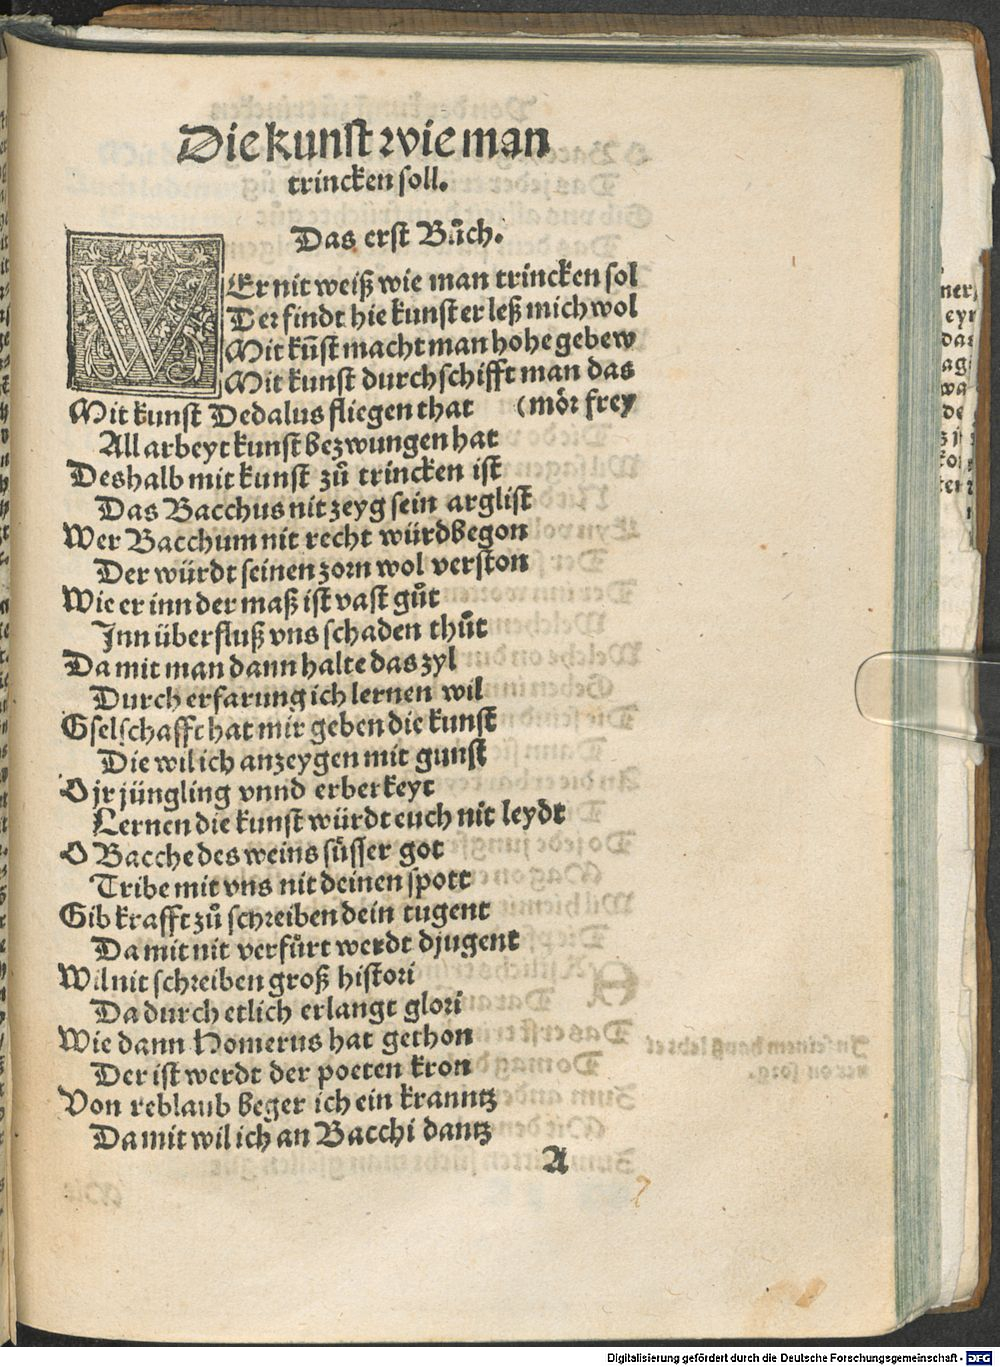 Die kunst wie man
trincken soll.
Das erst Bůch.
WEr nit weiß wie man trincken sol
Der findt hie kunst er leß mich wol
Mit kūst macht man hohe gebew
Mit kunst durchschifft man das
Mit kunst Dedalus fliegen that (mör frey
All arbeyt kunst bezwungen hat
Deshalb mit kunst zů trincken ist
Das Bacchus nit zeyg sein arglist
Wer Bacchum nit recht würdt begon
Der würdt seinen zorn wol verston
Wie er inn der maß ist vast gůt
Inn überfluß vns schaden thůt
Da mit man dann halte das zyl
Durch erfarung ich lernen wil
Gselschafft hat mir geben die kunst
Die wil ich anzeygen mit gunst
O jr jüngling vnnd erberkeyt
Lernen die kunst würdt euch nit leydt
O Bacche des weins süsser got
Tribe mit vns nit deinen spott
Gib krafft zů schreiben dein tugent
Da mit nit verfürt werdt djugent
Wil nit schreiben groß histori
Da durch etlich erlangt glori
Wie dann Homerus hat gethon
Der ist werdt der poeten kron
Von reblaub beger ich ein kranntz
Da mit wil ich an Bacchi dantz
A
Digitalisierung gefördert durch die Deutsche Forschungsgemeinschaft - DFG